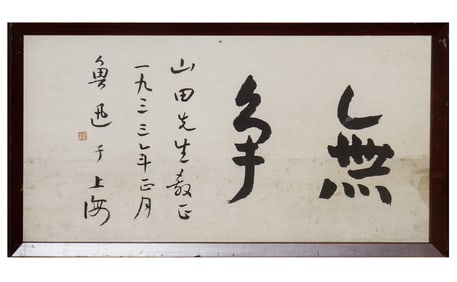 無争
山田先生教正
一九三三年正月
魯迅于上海